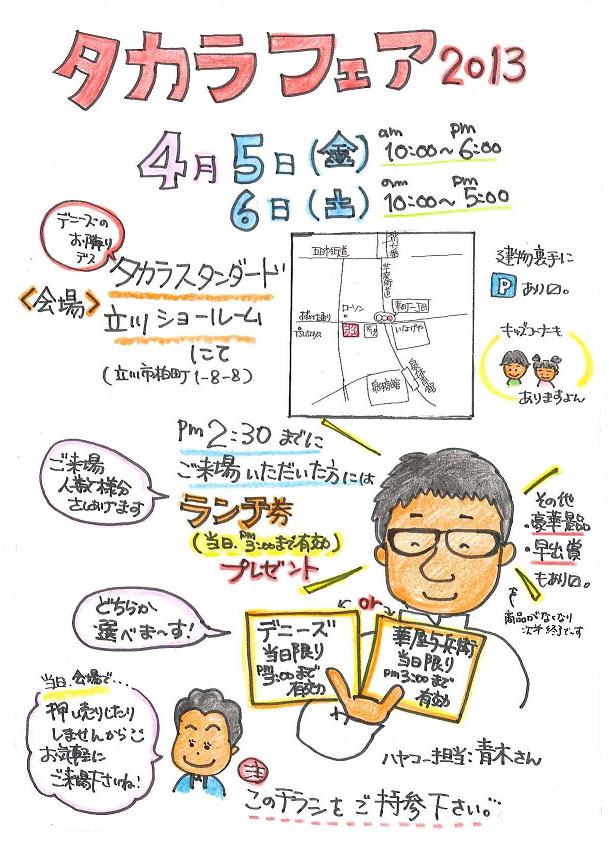 タカラフェア2013
4月5日(金) am 10:00～pm 6:00
6日(土) am 10:00～pm 5:00
デニーズの
お隣り
デス
<会場>
タカラスタンダード
立川ショールーム
にて
(立川市柏町1-8-8)
五日市街道
ローソン
TSUTAYA
いなげや
建物裏手に
P あり〼。
キッズコーナーも
ありますよん
ご来場
人数様分
さしあげます
pm 2:30 までに
ご来場いただいた方には
ランチ券
(当日、pm 3:00まで有効)
プレゼント
その他
・豪華景品
・早出賞
もあり〼。
商品がなくなり
次第終了です
どちらか
選べま～す!
or
デニーズ
当日限り
pm 3:00まで
有効
華屋与兵衛
当日限り
pm 3:00まで
有効
当日、会場で…
押し売りしたり
しませんから
お気軽に
ご来場下さいね!
ハヤコー担当:青木さん
注
このチラシをご持参下さい。